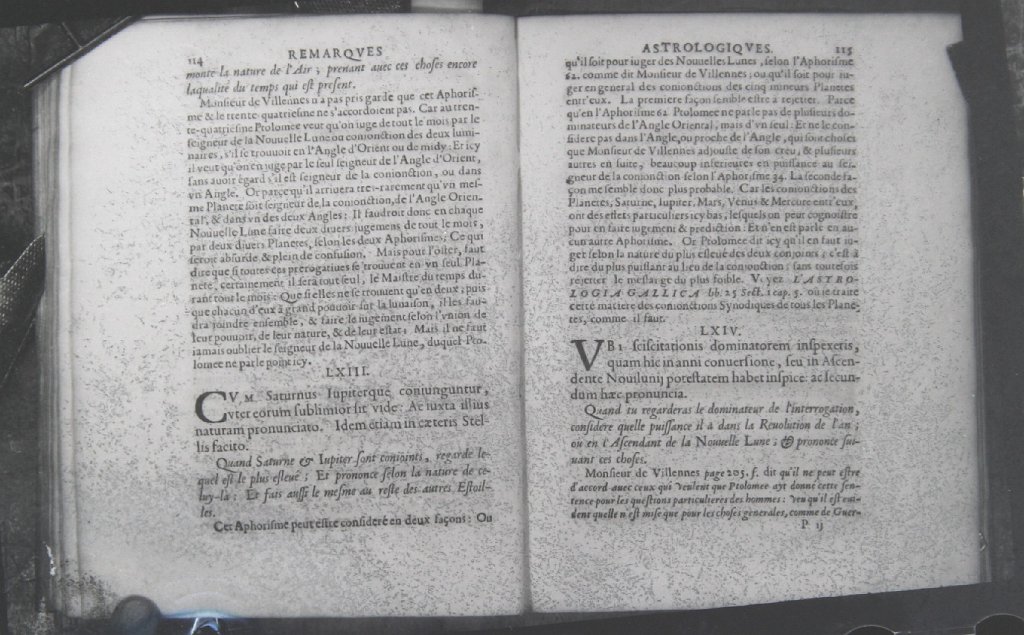 114 REMARQVES
monte la nature de l'Air ; prenant auec ces choses encore
laqualité du temps qui est present.
Monsieur de Villennes n'a pas pris garde que cet Aphoris-
me & le trente-quatriesme ne s'accordoient pas. Car au tren-
te-quatriesme Ptolomee veut qu'on iuge de tout le mois par le
seigneur de la Nouuelle Lune ou conionction des deux lumi-
naires, s'il se trouuoit en l'Angle d'Orient ou de midy: Et icy
il veut qu'on en iuge par le seul seigneur de l'Angle d'Orient,
sans auoir égard s'il est seigneur de la conionction, ou dans
vn Angle. Or parce qu'il arriuera tres-rarement qu'vn mes-
me Planete soit seigneur de la conionction, de l'Angle Orien-
tal, & dans vn des deux Angles: Il faudroit donc en chaque
Nouuelle Lune faire deux diuers iugemens de tout le mois,
par deux diuers Planetes, selon les deux Aphorismes; Ce qui
seroit absurde & plein de confusion. Mais pour l'oster, faut
dire que si toutes ces prerogatiues se trouuent en vn seul Pla-
nete, certainement il sera tout seul, le Maistre du temps du-
rant tout le mois: Que si elles ne se trouuent qu'en deux; puis
que chacun d'eux a grand pouuoir sur la lunaison, il les fau-
dra joindre ensemble, & faire le iugement selon l'vnion de
leur pouuoir, de leur nature, & de leur estat: Mais il ne faut
iamais oublier le seigneur de la Nouuelle Lune, duquel Pto-
lomee ne parle point icy.
LXIII.
CVM Saturnus Iupiterque coniunguntur,
vter eorum sublimior sit vide: Ac iuxta illius
naturam pronunciato. Idem etiam in cæteris Stel-
lis facito.
Quand Saturne & Iupiter sont conioints, regarde le-
quel est le plus esleué ; Et prononce selon la nature de ce-
luy-là ; Et fais aussi le mesme au reste des autres Estoil-
les.
Cet Aphorisme peut estre consideré en deux façons: Ou
ASTROLOGIQVES. 115
qu'il soit pour iuger des Nouuelles Lunes, selon l'Aphorisme
62. comme dit Monsieur de Villennes: ou qu'il soit pour iu-
ger en general des conionctions des cinq mineurs Planetes
entr'eux. La premiere façon semble estre à rejetter. Parce
qu'en l'Aphorisme 62 Ptolomee ne parle pas de plusieurs do-
minateurs de l'Angle Oriental, mais d'vn seul: Et ne le con-
sidere pas dans l'Angle, ou proche de l'Angle, qui soit choses
que Monsieur de Villennes adjouste de son creu, & plusieurs
autres en suite, beaucoup inferieures en puissance au sei-
gneur de la conionction selon l'Aphorisme 34. La seconde fa-
çon me semble donc plus probable. Car les conionctions des
Planetes, Saturne, Iupiter, Mars, Venus & Mercure entr'eux,
ont des effets particuliers icy bas, lesquels on peut cognoistre
pour en faire iugement & prediction: Et n'en est parlé en au-
cun autre Aphorisme. Or Ptolomee dit icy qu'il en faut iu-
ger selon la nature du plus esleué des deux conjoints ; c'est à
dire du plus puissant au lieu de la conionction: sans toutesfois
rejetter le meslange du plus foible. Voyez L'ASTRO-
LOGIA GALLICA lib. 25 Sect. 1 cap. 5. où ie traite
cette matiere des conionctions Synodiques de tous les Plane-
tes, comme il faut.
LXIV.
VBi sciscitationis dominatorem inspexeris,
quam hic in anni conuersione, seu in Ascen-
dente Nouilunij potestatem habet inspice: ac secun-
dum hæc pronuncia.
Quand tu regarderas le dominateur de l'interrogation,
considere quelle puissance il à dans la Reuolution de l'an ;
ou en l'Ascendant de la Nouuelle Lune ; & prononce sui-
uant ces choses.
Monsieur de Villennes page 205. f. dit qu'il ne peut estre
d'accord auec ceux qui veulent que Ptolomee ayt donné cette sen-
tence pour les questions particulieres des hommes: veu qu'il est eui-
dent quelle n'est mise que pour les choses generales, comme de Guer-
P ij